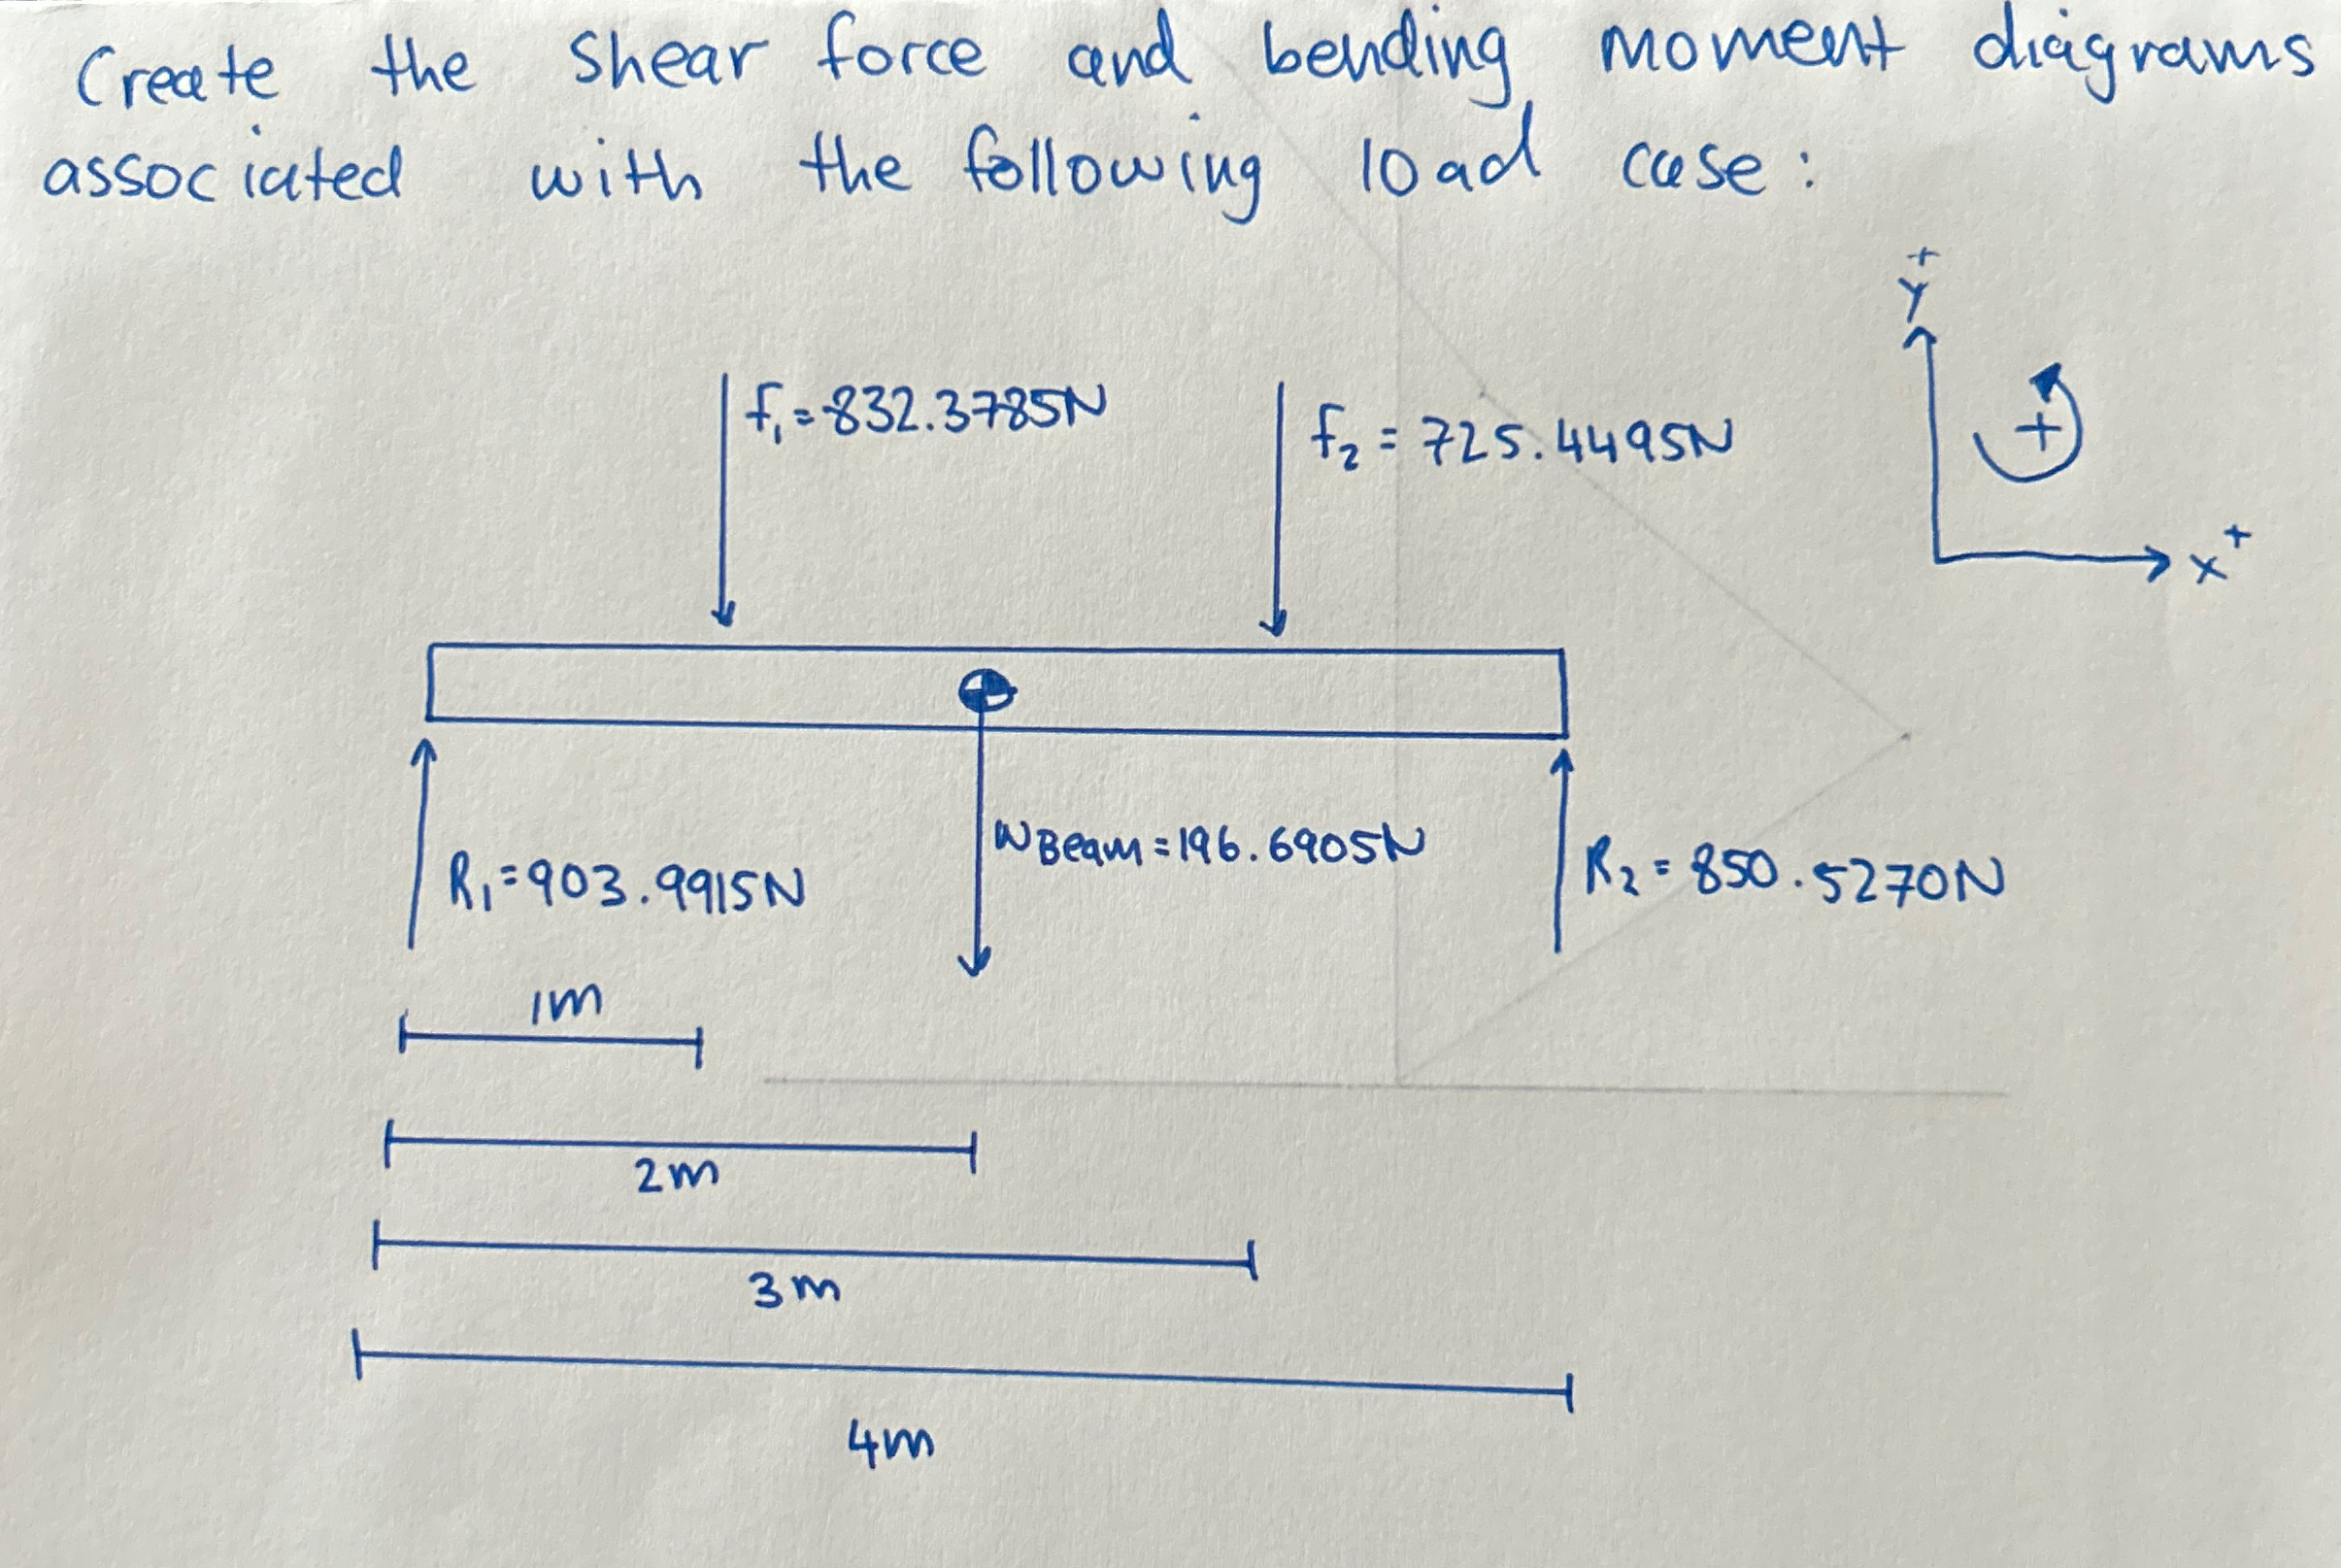 Create the shear force and bending moment diagrams
associated with the following load case:
y+
f₁=832.3785N
f₂=725.4495N
+
x+
WBeam=196.6905N
R₁=903.9915N
R₂=850.5270N
1m
2m
3m
4m